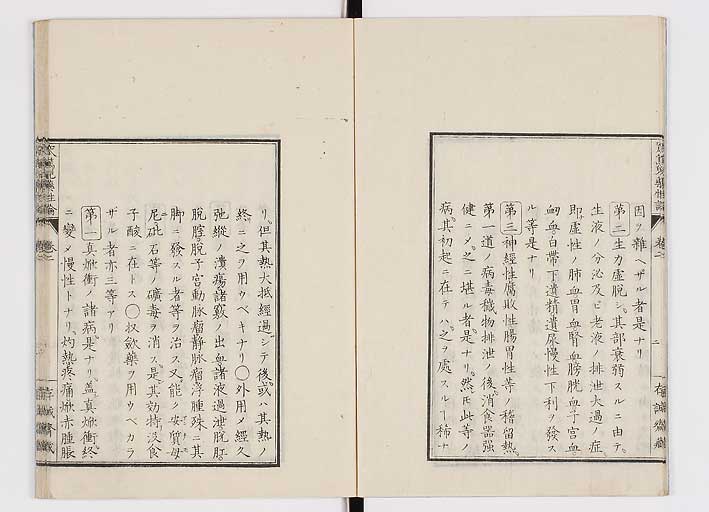 因ヲ雜ヘザル者是ナリ
第二生力虚脱シ其部衰弱スルニ由テ
生液ノ分泌及ビ老液ノ排泄大過ノ症
即虚性ノ肺血胃血腎血膀胱血子宮血
衄血白帯下遺精遺尿慢性下利ヲ發ス
ル等是ナリ
第三神經性腐敗性腸胃性等ノ稽留熱
第一道ノ病毒穢物排泄ノ後消食器強
健ニメ之ニ堪ル者是ナリ然𪜈此等ノ
病其初起ニ在テハ之ヲ處スルヿ稀ナ
二
存誠齋藏
リ但其熱大抵經過シテ後或ハ其熱ノ
終ニ之ヲ用ウベキナリ〇外用メ經久
弛縱ノ潰瘍諸竅ノ出血諸液過泄脱肛
脱膣脱子宮動脉瘤静脉瘤浮腫殊ニ其
脚ニ發スル者等ヲ治ス又能ク安質母
尼砒石等ノ礦毒ヲ消ス是其効特没食
子酸ニ在トス〇収斂藥ヲ用ウベカラ
ザル者亦三等アリ
第一真焮衝ノ諸病是ナリ蓋真焮衝終
ニ變メ慢性トナリ灼熱疼痛焮赤腫脹